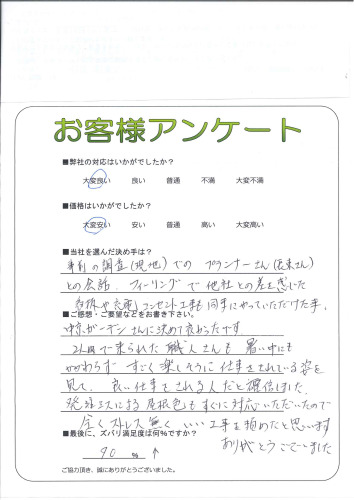 お客様アンケート
■弊社の対応はいかがでしたか?
大変良い 良い 普通 不満 大変不満
■価格はいかがでしたか?
大変安い 安い 普通 高い 大変高い
■当社を選んだ決め手は?
事前の調査(現地)での プランナーさん
との会話、フィーリングで他社との差を感じた
コンセント工事も同時にやっていただけた事。
■ご感想・ご要望などをお書き下さい。
ガーデンさんに決めて良かったです
2人で来られた職人さんも 暑い中にも
かかわらず すごく楽しそうに仕事をされている姿を
見て、良い仕事をされる人だと確信しました。
発注ミスによる屋根色もすぐに対応いただいたので
全くストレス無く いい工事を拍めたと思います
ありがとうございました
■最後に、ズバリ満足度は何%ですか?
90 % ↑
ご協力頂き、誠にありがとうございました。